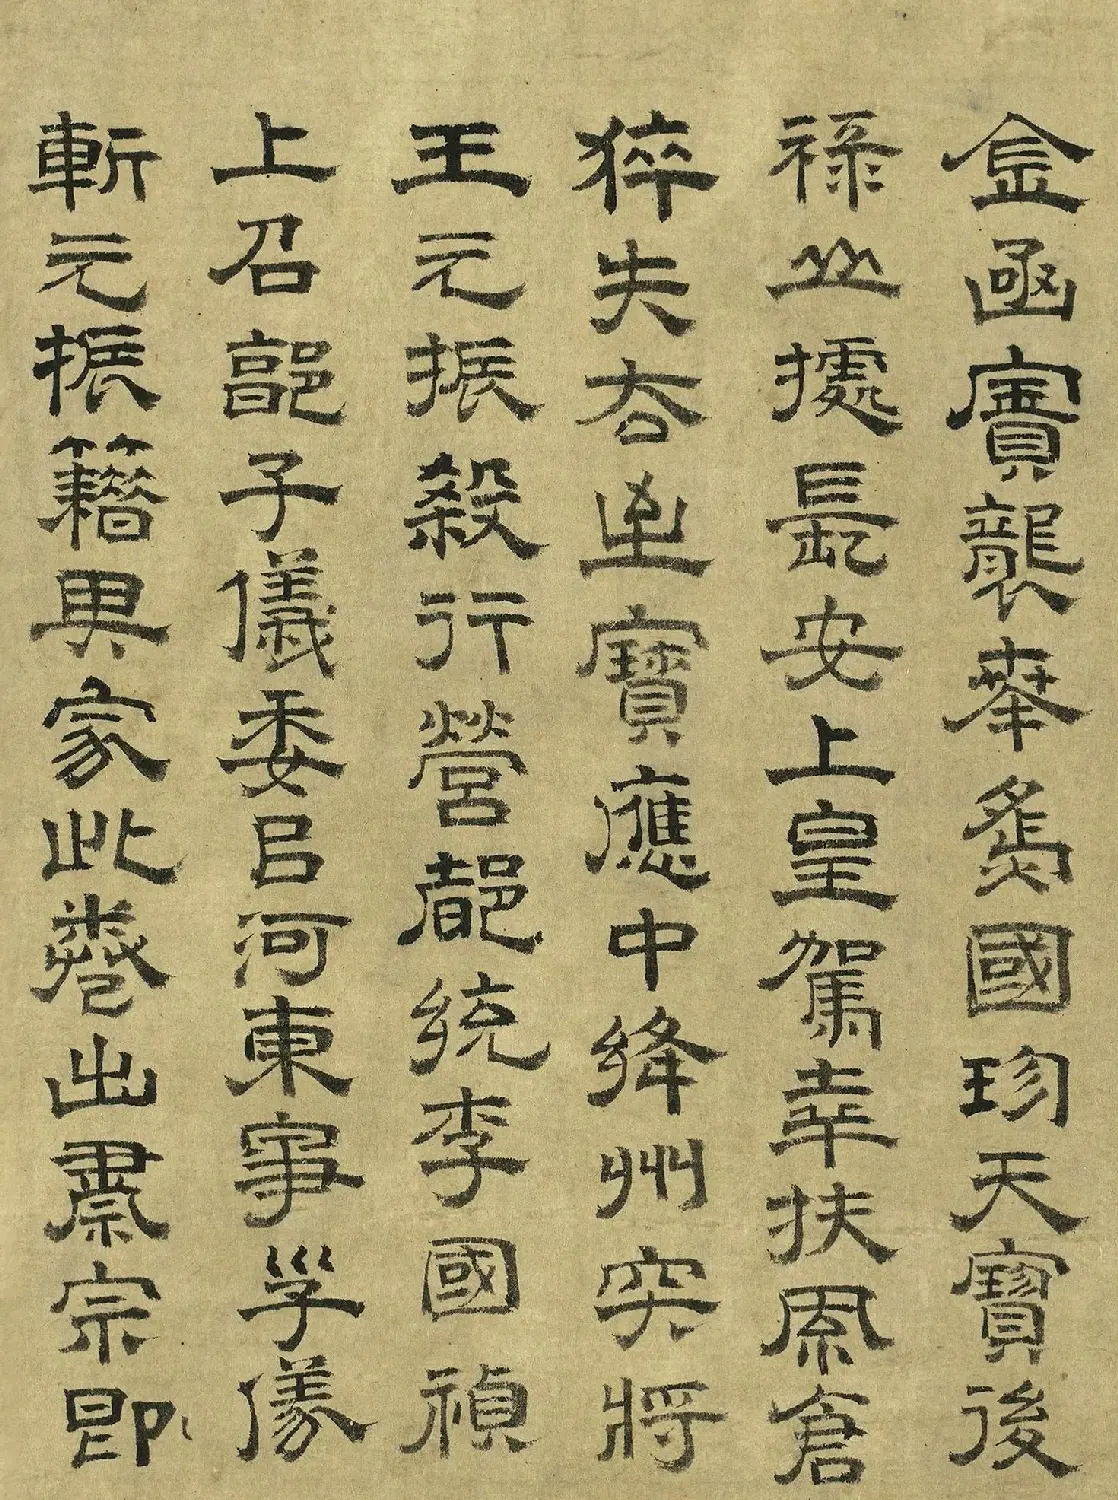 金函寶襲奉爲國珍天寶後
祿山據長安上皇駕幸扶風倉
猝失去至寶應中絳州突將
王元振殺行營都統李國禎
上召郭子儀委㠯河東事子儀
斬元振籍其家此卷出肅宗即